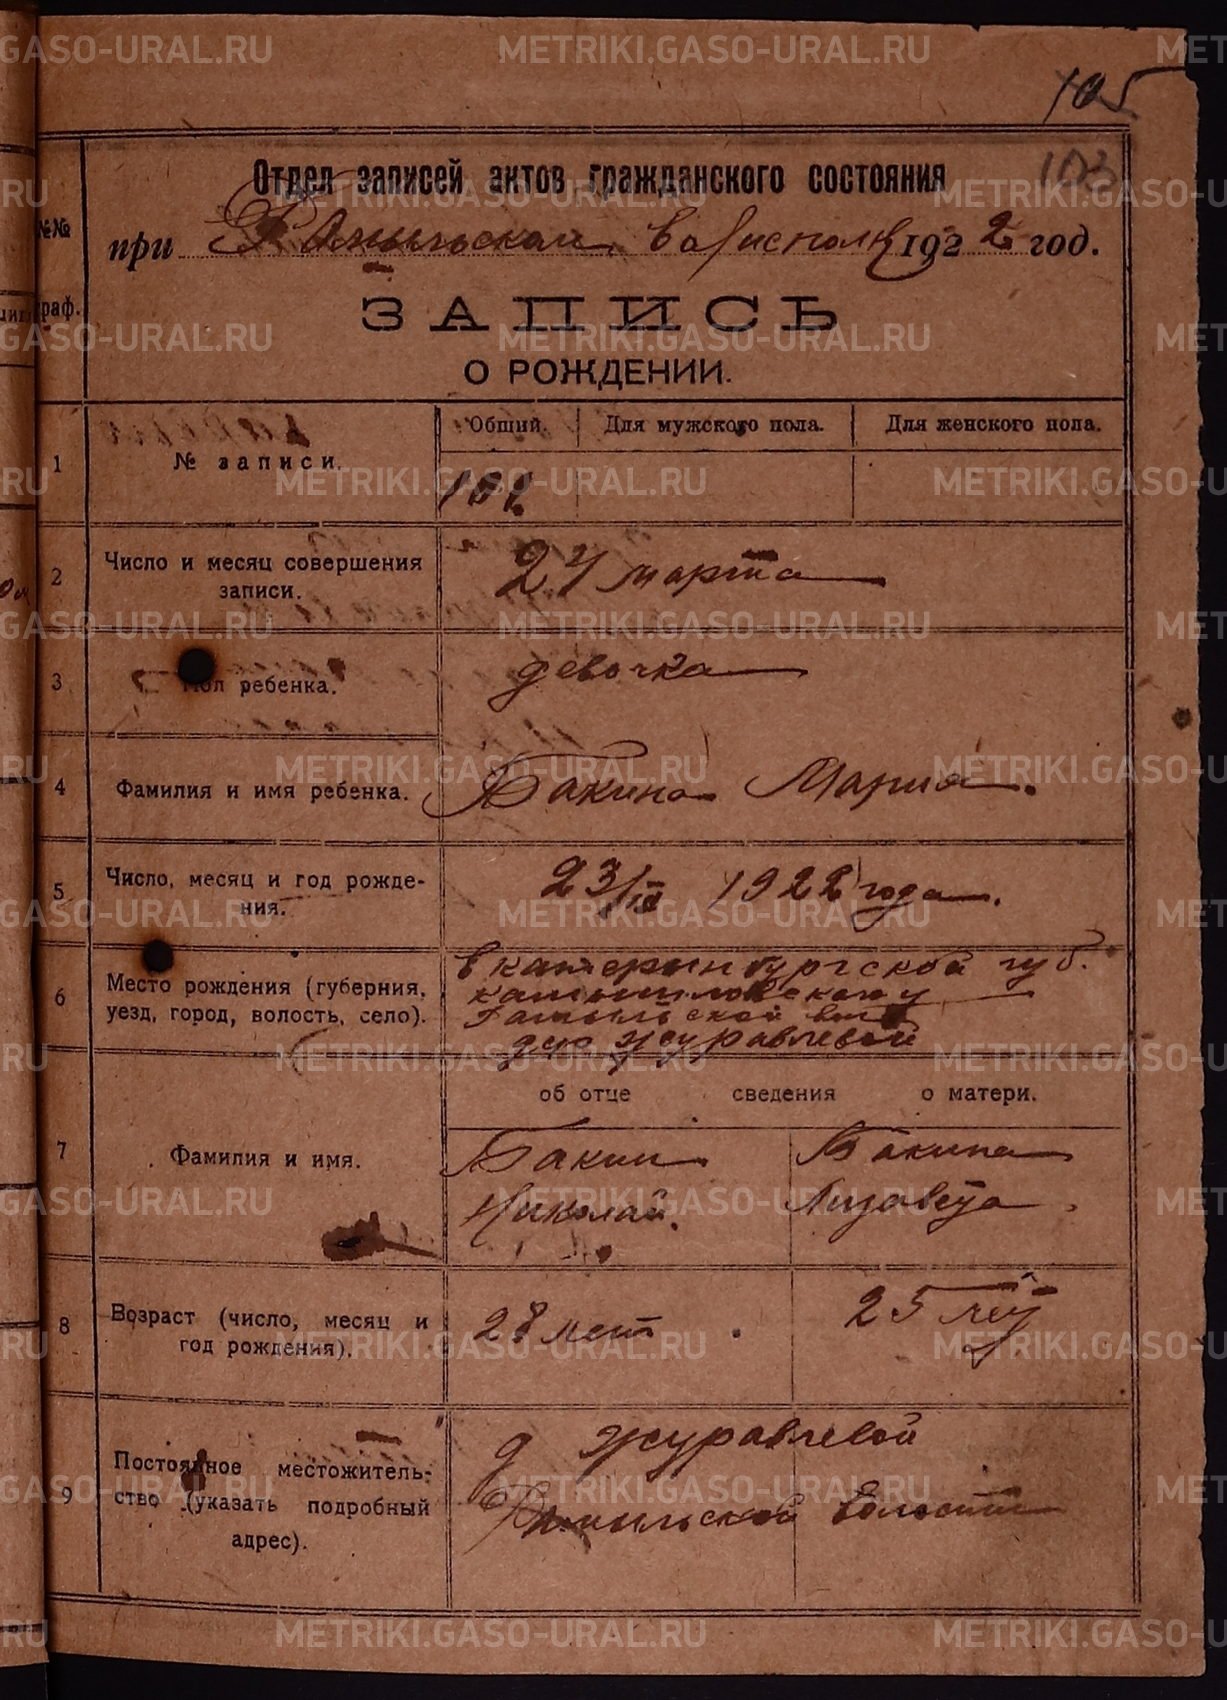 105
103
Отдел записей актов гражданского состояния
при волисполк 1922 год.
№№
граф.
ЗАПИСЬ
О РОЖДЕНИИ.
1 № записи. Общий. Для мужского пола. Для женского пола.
101.
2 Число и месяц совершения записи. 24 марта
3 Пол ребенка. девочка
4 Фамилия и имя ребенка. Бакина Мария.
5 Число, месяц и год рожде-
ния. 23/III 1922 года.
6 Место рождения (губерния, уезд, город, волость, село).
Екатеринбургской губ.
камышловского у
вол
дер журавлевой
об отце сведения о матери.
7 Фамилия и имя.
Бакин Бакина
Николай. Лизавета
8 Возраст (число, месяц и
год рождения). 28 лет 25 лет
9 Постоянное местожитель-
ство (указать подробный
адрес).
д журавлевой
волости
METRIKI.GASO-URAL.RU